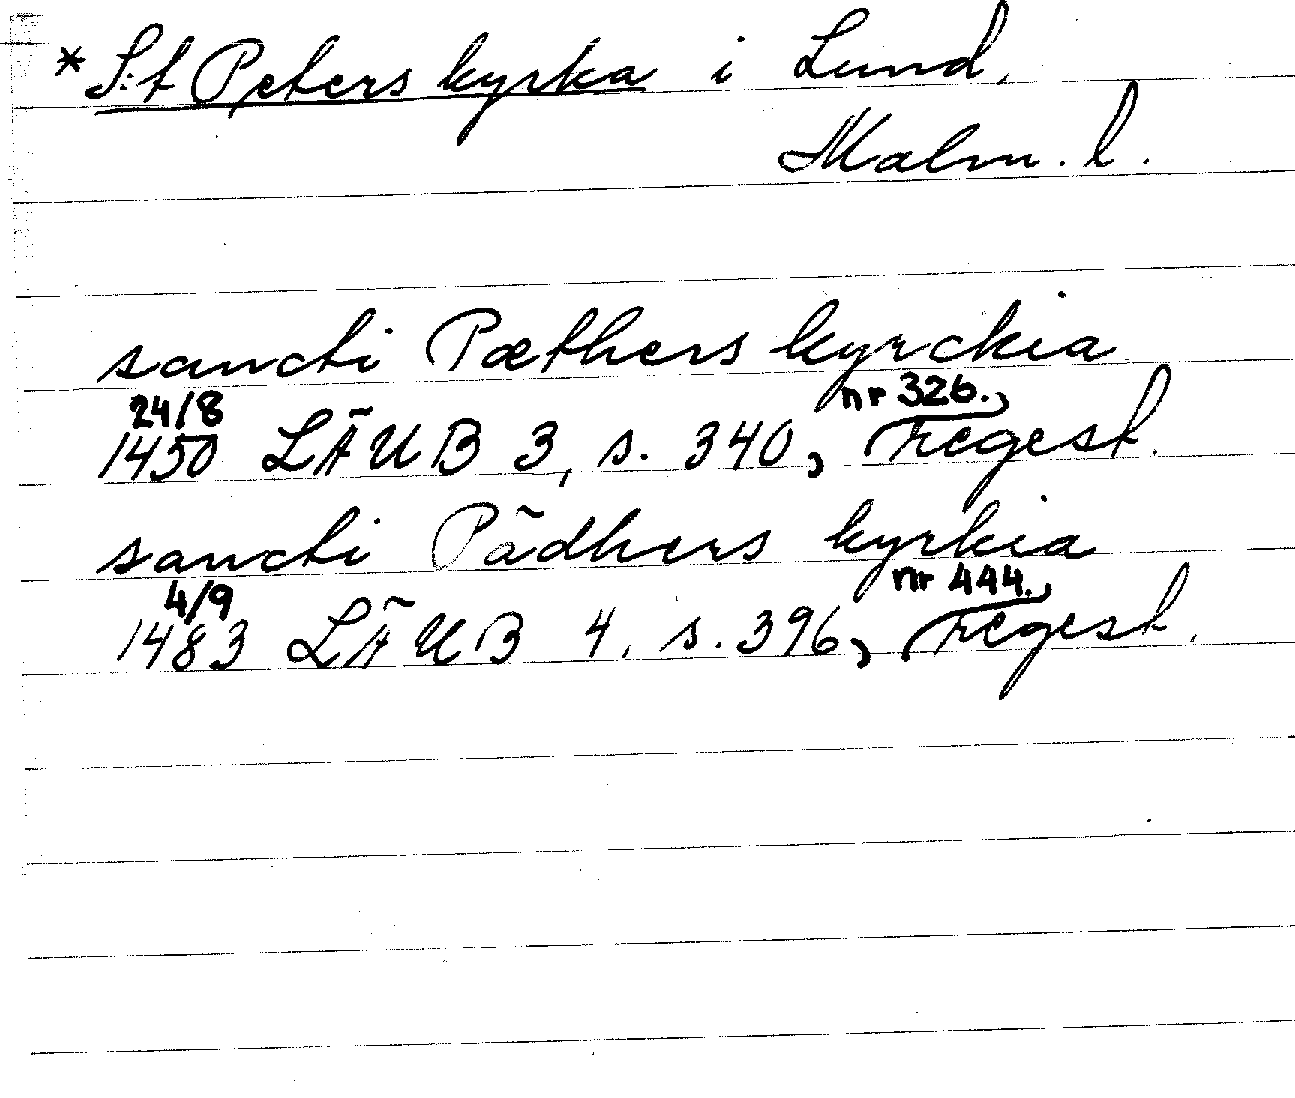 * S:t Peters kyrka i Lund,
Malm. l.
sancti Pæthers kyrckia
24/8 nr 326.,
1450 LÄUB 3, s. 340, regest.
sancti Pädhers kyrkia
4/9 nr 444.,
1483 LÄUB 4, s. 396, regest.